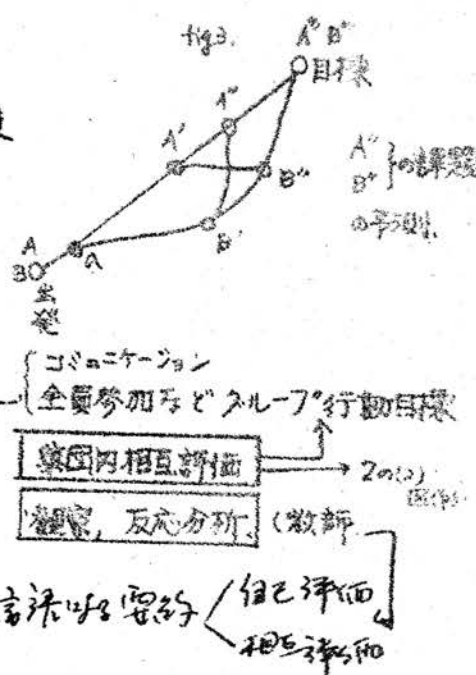 fig3.
A‴ B‴
目標
A″
A′
B″
A″
B″ }の課題
の予測.
B′
a
A
B
出発
コミュニケーション
全員参加など グループ行動目標
集団内相互評価
→ 2の(2)
観察, 反応分析. (教師
言語による要約
自己評価
相互評価